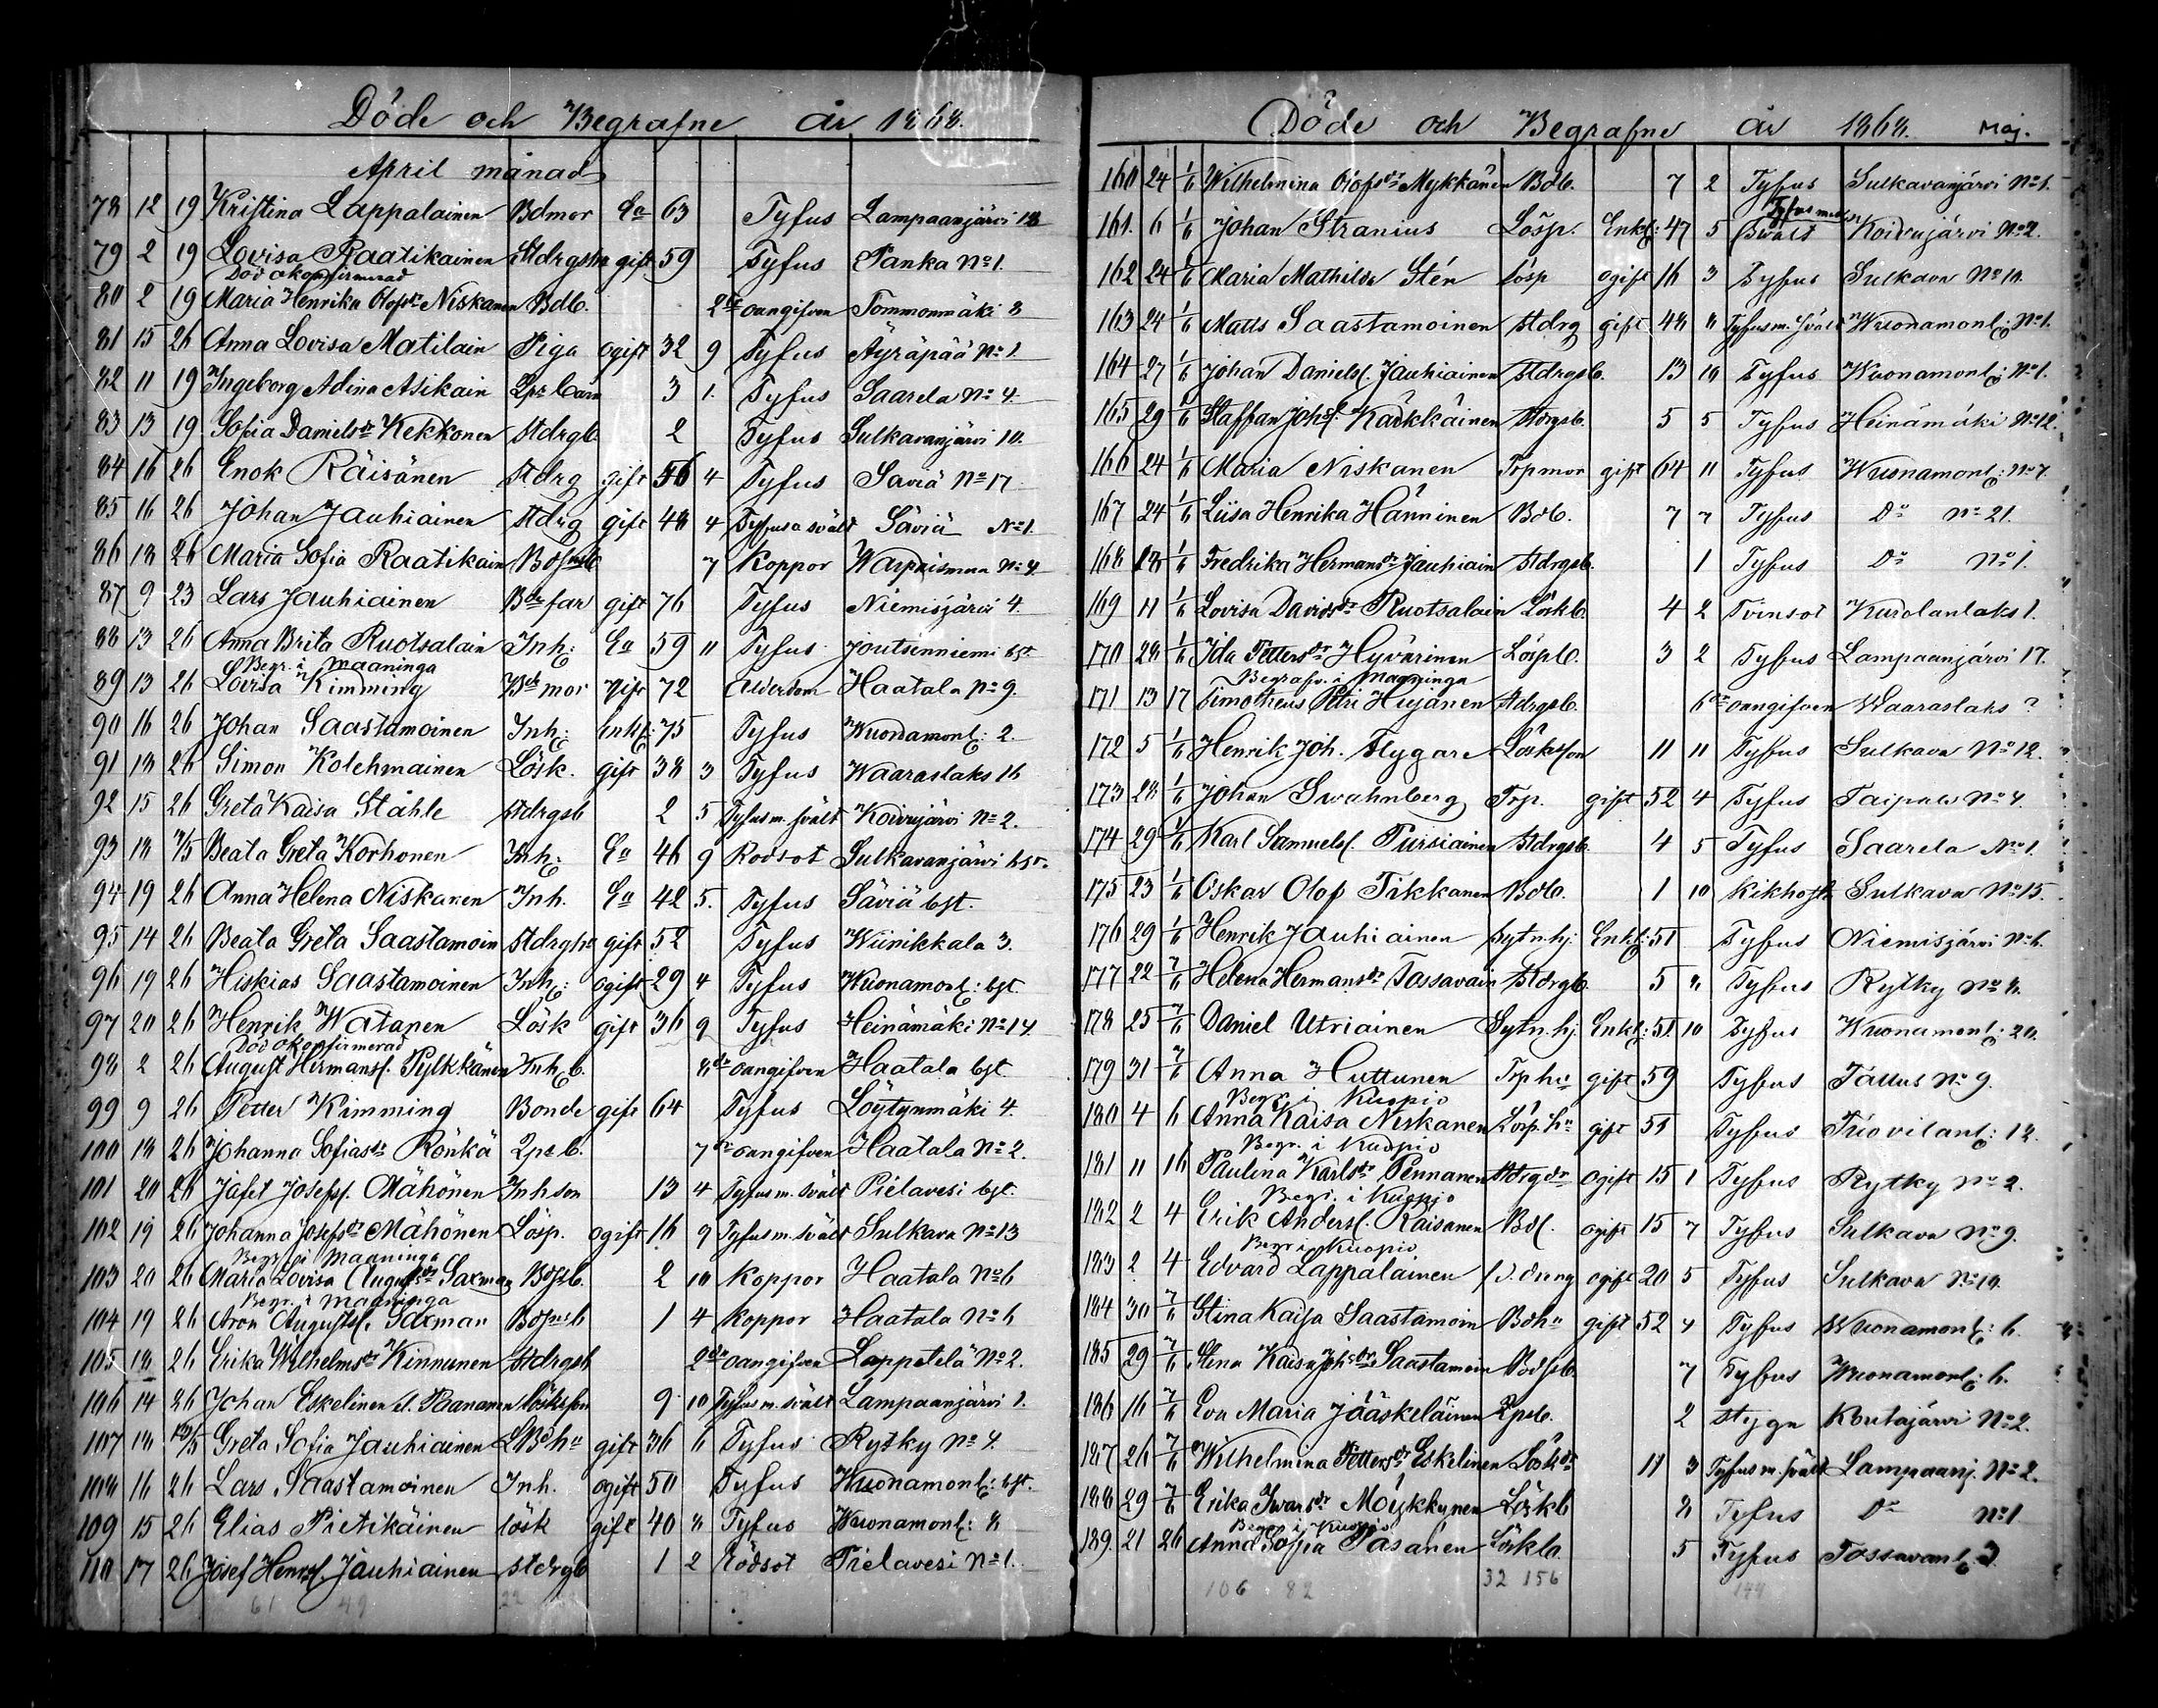 Döde och Begrafne år 1868.
April månad
78 12 19 Kristina Lappalainen Bdmor Ea 63 Tyfus Lampaanjärvi 18
79 2 19 Lovisa Raatikainen Stdrgsh gift 59 Tyfus Panka No 1.
Död okonfirmerad
80 2 19 Maria Henrika Olofsdr Niskanen Bdb. 2 oangifven Tommonmäki 8
81 15 26 Anna Lovisa Matilain Piga ogift 32 9 Tyfus Äyräpää No 1
82 11 19 Ingeborg Adina Asikain barn 3 1. Tyfus Saarela No 4.
83 13 19 Sofia Danielsdr Kekkonen Stdrgb. 2 Tyfus Sulkavanjärvi 10.
84 16 26 Enok Räisänen Stdrg gift 56 4 Tyfus Saviä No 17
85 16 26 Johan Jauhiainen Stdrg gift 48 4 Tyfus a svält Säviä No 1
86 18 26 Maria Sofia Raatikain 7 Koppor No 4
87 9 23 Lars Jauhiainen Bdefar gift 76 Tyfus Niemisjärvi 4.
88 13 26 Anna Brita Ruotsalain Inh: Ea 59 11 Tyfus Joutsenniemi bgt.
Begr. i Maaninga
89 13 26 Lovisa Kimming mor gift 72 Ålderdom Haatala No 9.
90 16 26 Johan Saastamoinen Inh: Enkl: 75 Tyfus Wuonamonl: 2.
91 18 26 Simon Kolehmainen Lösk. gift 38 3 Tyfus Waaraslaks 16
92 15 26 Greta Kaisa Ståhle Stdrgsb 2 5 Tyfus m. svält Koivujärvi No 2.
93 18 /5 Beata Greta Korhonen Inh: Ea 46 9 Rodsot Sulkavanjärvi bgt.
94 19 26 Anna Helena Niskanen Inh. Ea 42 5. Tyfus Säviä bgt.
95 14 26 Beata Greta Saastamoin Stdrghu gift 52 Tyfus Wiinikkala 3.
96 19 26 Hiskias Saastamoinen Inh: ogift 29 4 Tyfus Wuonamonl: bgt
97 20 26 Henrik Watanen Lösk gift 36 9 Tyfus Heinämäki No 14
Död okonfirmerad
98 2 26 August Hermansf. Pylkkänen Inh b. 8 oangifven Haatala bgt
99 9 26 Petter Kimming Bonde gift 64 Tyfus Löytynmäki 4.
100 18 26 Johanna Sofiasdr Rönkä b. 7 oangifven Haatala No 2.
101 20 26 Jafet Josefsf. Mähönen Inhson 13 4 Tyfus m. svält Pielavesi bgt.
102 19 26 Johanna Josefsdr Mähönen Lösp. ogift 16 9 Tyfus m. svält Sulkava No 13
Begr. i Maaninga
103 20 26 Maria Lovisa Augustsdr Saxman 2 10 Koppor Haatala No 6
Begr. i Maaninga
104 19 26 Aron Augustsf. Saxman 1 4 Koppor Haatala No 6
105 18 26 Erika Wilhelmsdr Kinnunen Stdrgsb 2 oangifven Lappetelä No 2.
106 14 26 Johan Eskelinen l. Paananen Löskson 9 10 Tyfus m. svält Lampaanjärvi 1.
107 18 /5 Greta Sofia Jauhiainen gift 36 6 Tyfus Rytky No 4.
108 16 26 Lars Saastamoinen Inh. ogift 50 Tyfus Wuonamonl: bgt.
109 15 26 Elias Pietikäinen lösk gift 40 8 Tyfus Wuonamonl: 8
110 17 26 Josef Henrsf. Jauhiainen Stdrgb 1 2 Rödsot Pielavesi No 1.
61 49 22
Döde och Begrafne år 1868. Maj.
160 24 1/6 Wilhelmina Olofsdr Mykkänen Bdb. 7 2 Tyfus Sulkavanjärvi No 1.
161. 6 1/6 Johan Stranius Lösp. Enkl: 47 5 Tyfus med Svält Koivujärvi No 2.
162 24 1/6 Maria Mathilda Stén lösp ogift 16 3 Tyfus Sulkava No 10.
163 24 1/6 Matts Saastamoinen Stdrg gift 48 8 Tyfus m. svält Wuonamonl: No 1.
164 27 1/6 Johan Danielsf. Jauhiainen Stdrgsb. 13 10 Tyfus Wuonamonl: No 1.
165 29 1/6 Staffan Johsf. Kärkkäinen Stdrgsb. 5 5 Tyfus Heinämäki No 12.
166 24 1/6 Maria Niskanen Trpmor gift 64 11 Tyfus Wuonamonl: No 7.
167 24 1/6 Liisa Henrika Hänninen Bdb. 7 7 Tyfus Do No 21.
168 18 1/6 Fredrika Hermansdr Jauhiain Stdrgsb. 1 Tyfus Do No 1.
169 11 1/6 Lovisa Davidsdr Ruotsalain Löskb. 4 2 Tvinsot Kurolanlaks 1.
170 28 1/6 Ida Pettersdr Hyvärinen Löspb. 3 2 Tyfus Lampaanjärvi 17.
Begrafv. i Maaninga
171 13 17 Timotheus Petri Hujanen Stdrgsb. 6 oangifven Waaraslaks ?
172 5 1/6 Henrik Joh. Flygare Löskson 11 11 Tyfus Sulkava No 12.
173 28 1/6 Johan Swahnberg Trp. gift 52 4 Tyfus Taipale No 4.
174 29 1/6 Karl Samuelsf. Pursiainen Stdrgsb. 4 5 Tyfus Saarela No 1.
175 23 1/6 Oskar Olof Tikkanen Bdb. 1 10 Kikhosta Sulkava No 15.
176 29 1/6 Henrik Jauhiainen Sytn.hj. Enkl: 51 Tyfus Niemisjärvi No 6.
177 22 7/6 Helena Hermansdr Tossavain Stdrgb 5 8 Tyfus Rytky No 8.
178 25 7/6 Daniel Utriainen Sytn.hj. Enkl: 51 10 Tyfus Wuonamonl: 20.
179 31 7/6 Anna Huttunen Trphu gift 59 Tyfus Jällus No 9.
Begr. i Kuopio
180 4 6 Anna Kaisa Niskanen Lösp. hu gift 51 Tyfus Tuovilanl: 12.
Begr. i Kuopio
181 11 16 Paulina Karlsdr Pennanen Stdrgdr ogift 15 1 Tyfus Rytky No 2.
Begr. i Kuopio
182 2 4 Erik Andersf. Räisänen ogift 15 7 Tyfus Sulkava No 9.
Begr i Kuopio
183 2 4 Edvard Lappalainen dreng ogift 20 5 Tyfus Sulkava No 10.
184 30 7/6 Stina Kaisa Saastamoin Bdhu gift 52 4 Tyfus Wuonamonl: 6.
185 29 7/6 Stina Kaisa Johsdr Saastamoin 7 Tyfus Wuonamonl: 6.
186 16 7/6 Eva Maria Jääskeläinen 2 Stygn Koutajärvi No 2.
187 26 7/6 Wilhelmina Pettersdr Eskelinen Löskdr 11 3 Tyfus m. svält Lampaanj. No 2.
188 29 7/6 Erika Iwarsdr Möykkynen Löskb 8 Tyfus Do No 1
Begr. i Kuopio
189. 21 26 Anna Sofia Pasanen Löskb. 5 Tyfus Tossavanl: 3.
106 82 32 156 144